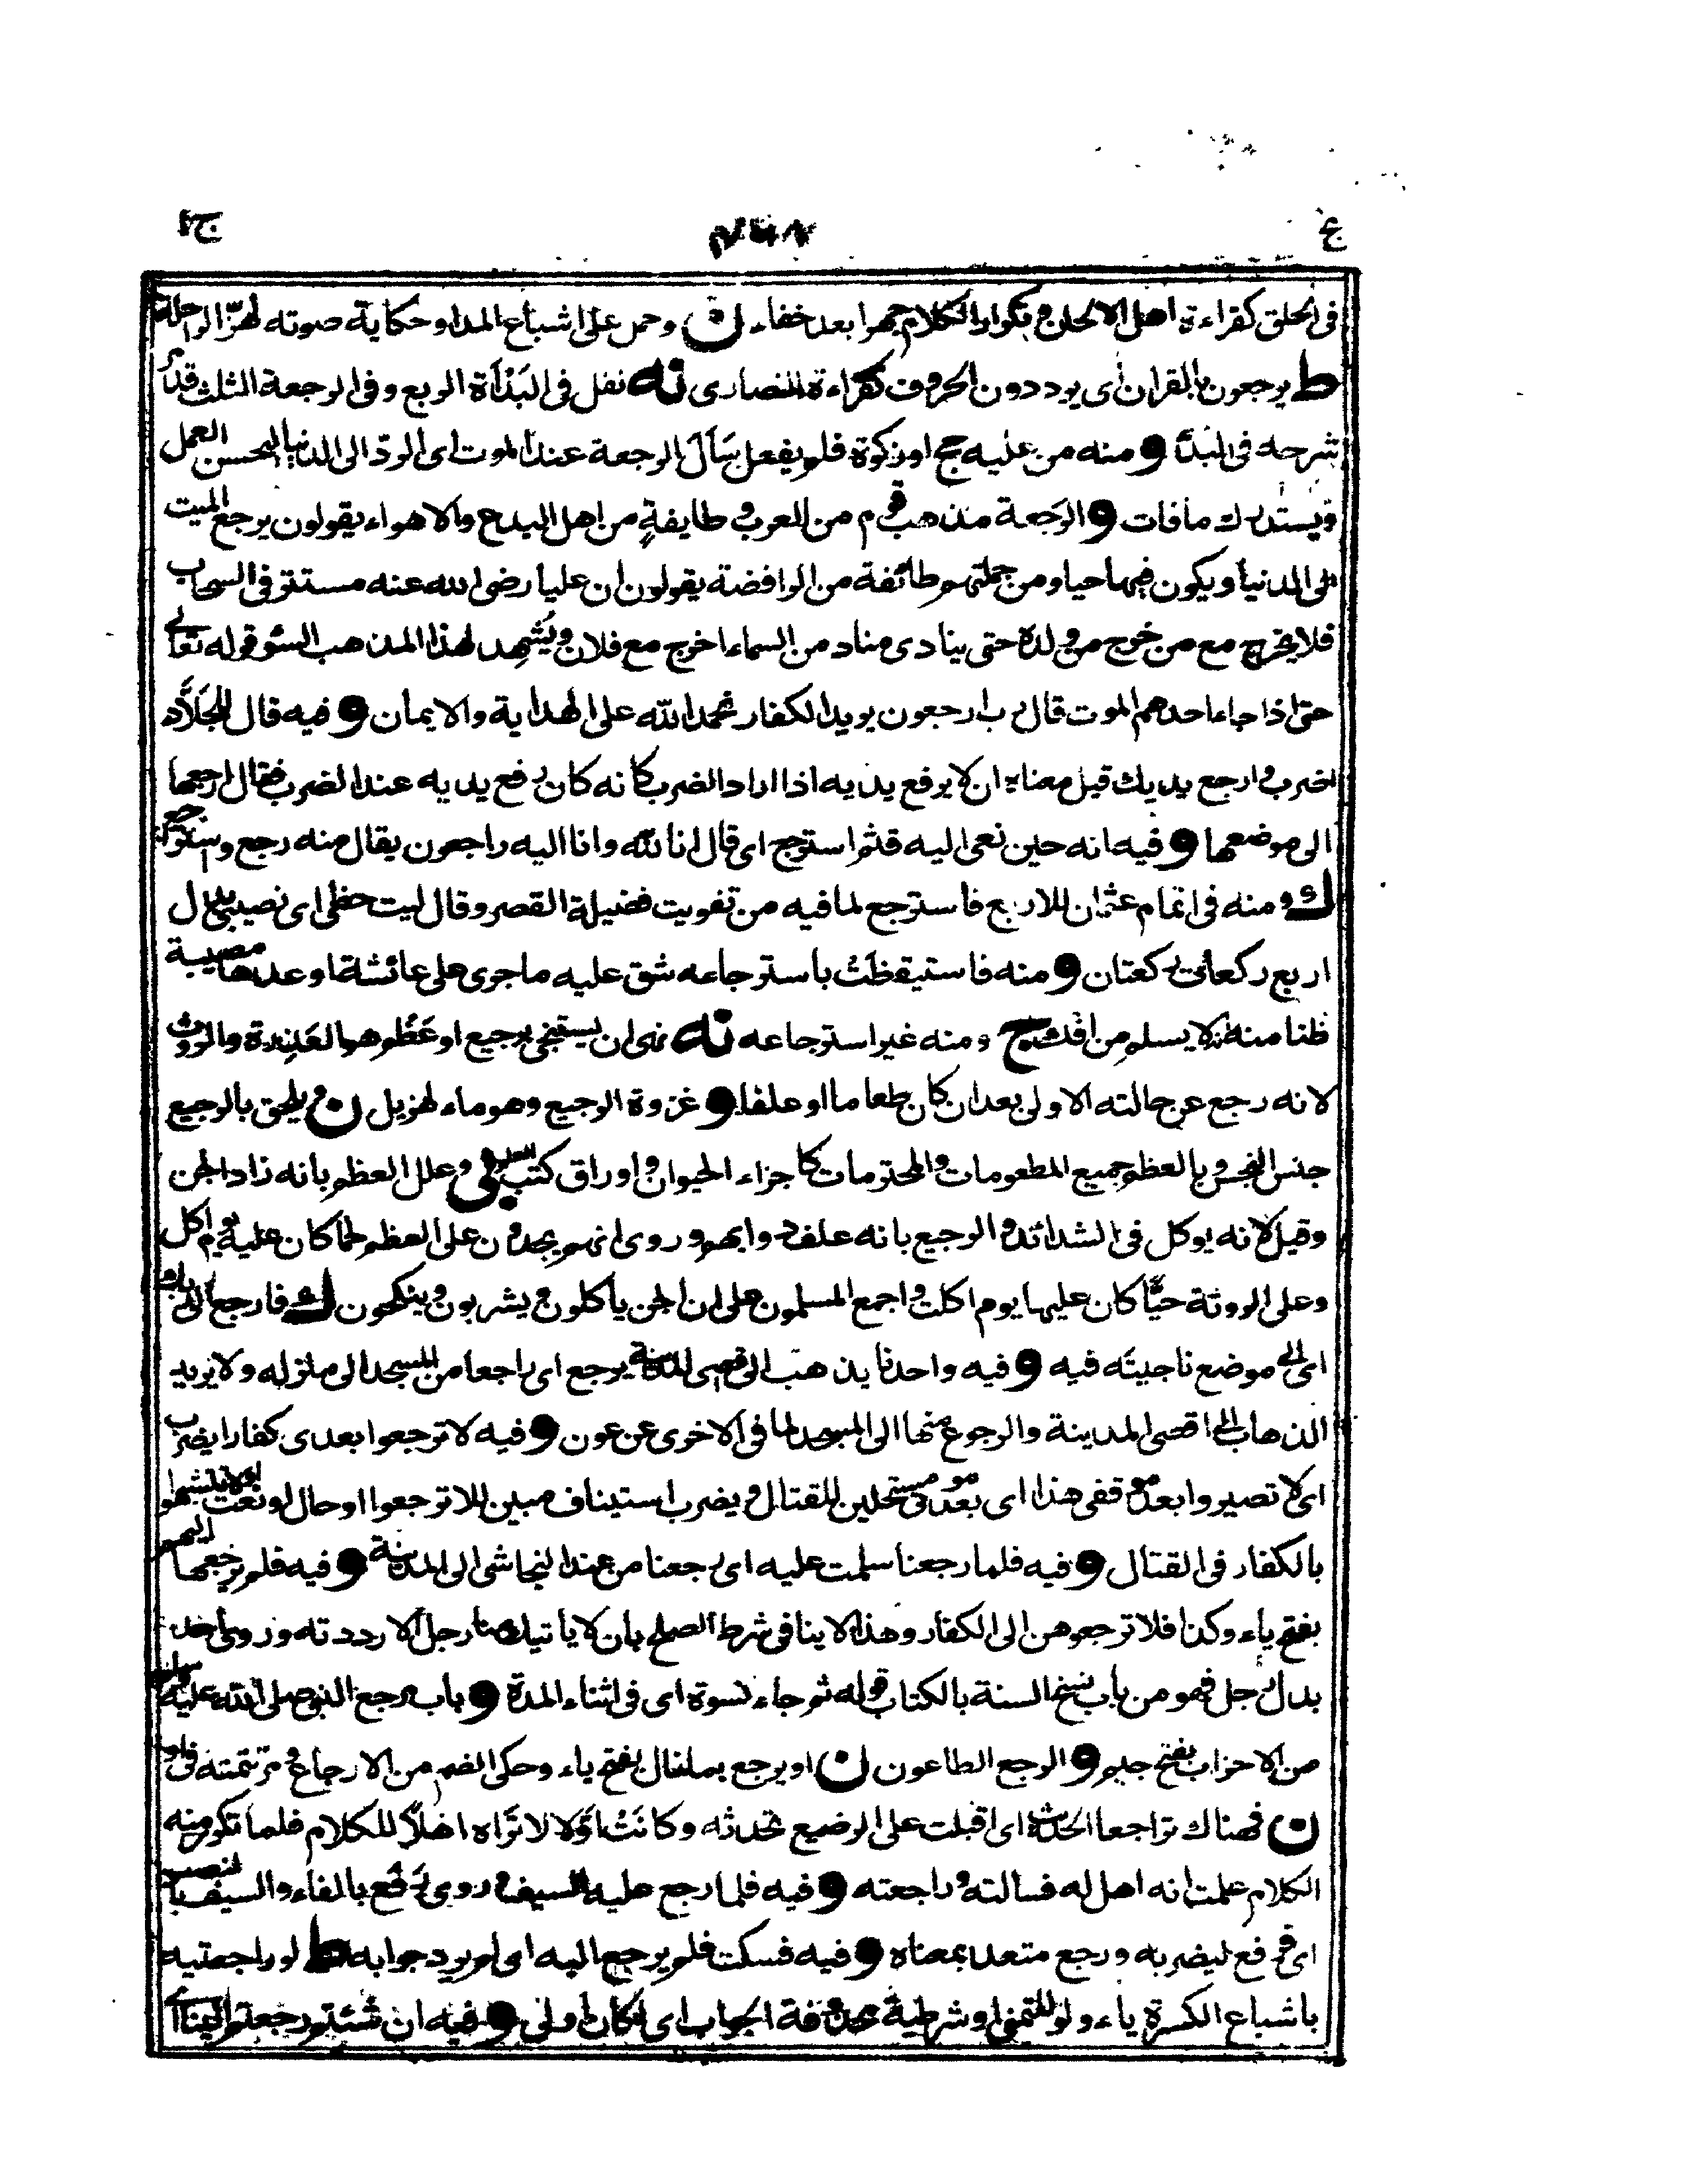 ج ١
ع
في الحلق كقراءة اهل الالحان و تكرار الكلام جهرا بعد خفاء ن وحمل على اشباع المد او حكاية صوته لهزّ الراحلة
ط يرجعون بالقران اى يرددون الحروف كقراءة النصارى نه نفل في البَدْأة الربع وفي الرجعة الثلث قد مر
شرحه في البدء و منه من عليه حج او زكوة فلم يفعل سَأَلَ الرجعة عند الموت اى الردّ الى الدنيا ليحسن العمل
ويستدرك ما فات و الرَجعة مذهب قوم من العرب و طايفةٍ من اهل البدع والاهواء يقولون يرجع الميت
الى الدنيا ويكون فيها حيا ومن جملتهم طائفة من الرافضة يقولون ان عليا رضى الله عنه مستتر في السحاب
فلا يخرج مع من خرج من ولده حتى ينادى مناد من السماء اخرج مع فلان ويُشهِد لهذا المذهب السوء قوله تعالى
حتى اذا جاء احدهم الموت قال رب ارجعون يريد الكفار نحمد الله على الهداية والايمان و فيه قال للجَلَّاد
اضرب و ارجع يديك قيل معناه ان لا يرفع يديه اذا اراد الضرب كانه كان رفع يديه عند الضرب فقال ارجعها
الى موضعها و فيه انه حين نعى اليه قثم استرجع اى قال انا لله وانا اليه راجعون يقال منه رجع واسترجع
ك و منه في اتمام عثمان للاربع فاسترجع لما فيه من تفويت فضيلة القصر وقال ليت حظى اى نصيبي بدل
اربع ركعات ركعتان و منه فاستيقظتُ باسترجاعه شق عليه ما جرى على عائشة او عدها مصيبة
ظنا منه لا يسلم من افك ج ومنه غير استرجاعه نه نهى ان يستنجى برجيع او عَظْم هو العَذِرة والروث
لانه رجع عن حالته الاولى بعد ان كان طعاما او علفا و غزوة الرجيع وهو ماء لهزيل ن و يلحق بالرجيع
جنس النجس و بالعظم جميع المطعومات والمحترمات كاجزاء الحيوان و اوراق كتب العلم وعلل العظم بانه زاد الجن
وقيل لانه يوكل في الشدائد و الرجيع بانه علف دوابهم و روى انهم يجدون على العظم لحما كان عليه يوم اكل
وعلى الروثة حبًّا كان عليها يوم اكلت و اجمع المسلمون على ان الجن يأكلون و يشربون و ينكحون ك فارجع
اى الى موضع ناجيتَه فيه و فيه واحدنا يذهب الى اقصى المدينة يرجع اى راجعا من المسجد الى منزله ولا يريد
الذهاب الى اقصى المدينة والرجوع منها الى المسجد لما في الاخرى عن عون و فيه لا ترجعوا بعدى كفارا يضرب
اى لا تصيروا بعد موقفي هذا اى بعد موتى مستحلين للقتال و يضرب استيناف مبين للاترجعوا او حال او نعت او لا تتشبهوا
بالكفار في القتال و فيه فلما رجعنا سلمت عليه اى رجعنا من عند النجاشى الى المدينة و فيه فلم يرجعها اليهم
بفتح ياء وكذا فلا ترجعوهن الى الكفار وهذا لا ينافي شرط الصلح بان لا ياتيك منا رجل الا رددته وروى احد
بدل رجل فهو من باب نسخ السنة بالكتاب قوله ثم جاء نسوة اى في اثناء المدة و باب مرجع النبى صلى الله عليه وسلم
من الاحزاب بفتح جيم و الرجع الطاعون ن او يرجع بما نال بفتح ياء وحكى الضم من الارجاع و مر تتمته في
ن فهناك تراجعا الحديث اى اقبلت على الرضيع تحدثه وكانَتْ اوّلا لا تَراه اهلاً للكلام فلما تكرر منه
الكلام علمت انه اهل له فسالته و راجعته و فيه فلما رجع عليه السيف و روى رَفَع بالفاء والسيف بالنصب
اى رفع ليضربه ورجع متعد بمعناه و فيه فسكت فلم يرجع اليه اى لم يرد جوابه ط لو راجعتيه
باشباع الكسرة ياء ولو للتمنى او شرطية محذوفة الجواب اى لكان اولى و فيه ان شئتم رجعتم الينا اى